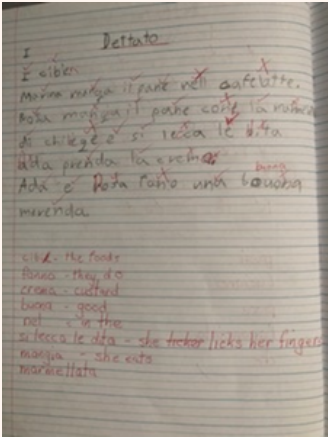 I Dettato
È cibien
Marina mangia il pane nell cafelatte.
Rosa mangia il pane cone la
di chilege e si lecca le dita
Ada prenda la crema
buona
Ada e Rosa fano una
merenda
cibi - the foods
fanno - they do
crema - custard
buona - good
nel - in the
si lecca le dita - she licks her fingers
mangia - she eats
marmellata